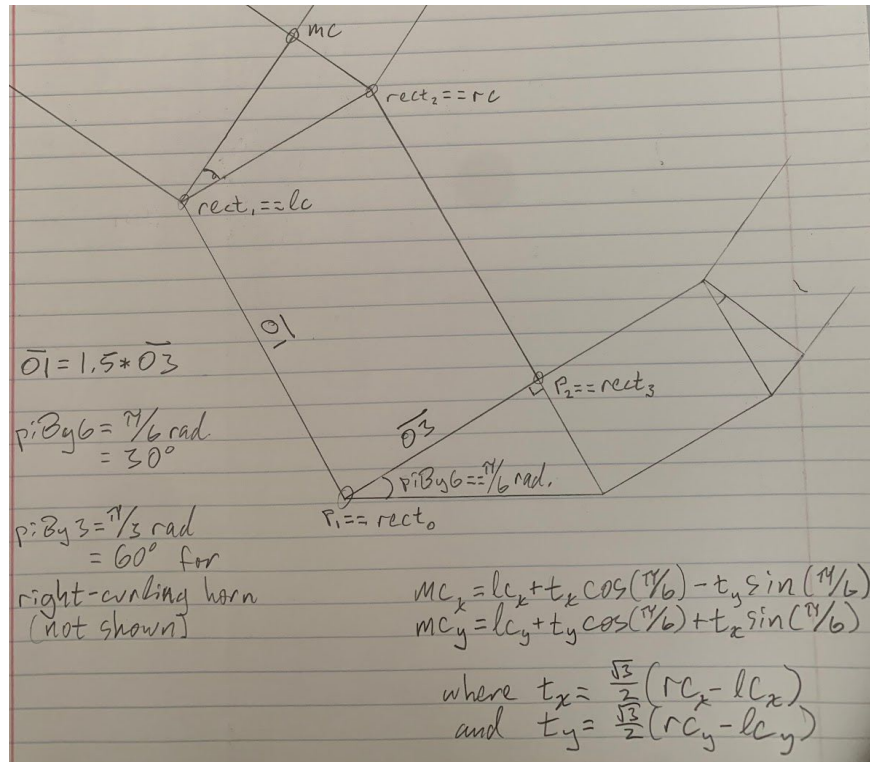 mc
rect₂==rc
rect₁==lc
01
01=1.5*03
P₂==rect₃
03
piBy6=π/6 rad
=30°
piBy6==π/6 rad.
P₁==rect₀
piBy3=π/3 rad
=60° for
right-curling horn
(not shown)
mcₓ=lcₓ+tₓcos(π/6)-t_y sin(π/6)
mc_y=lc_y+t_y cos(π/6)+tₓsin(π/6)
where tₓ=√3/2(rcₓ-lcₓ)
and t_y=√3/2(rc_y-lc_y)